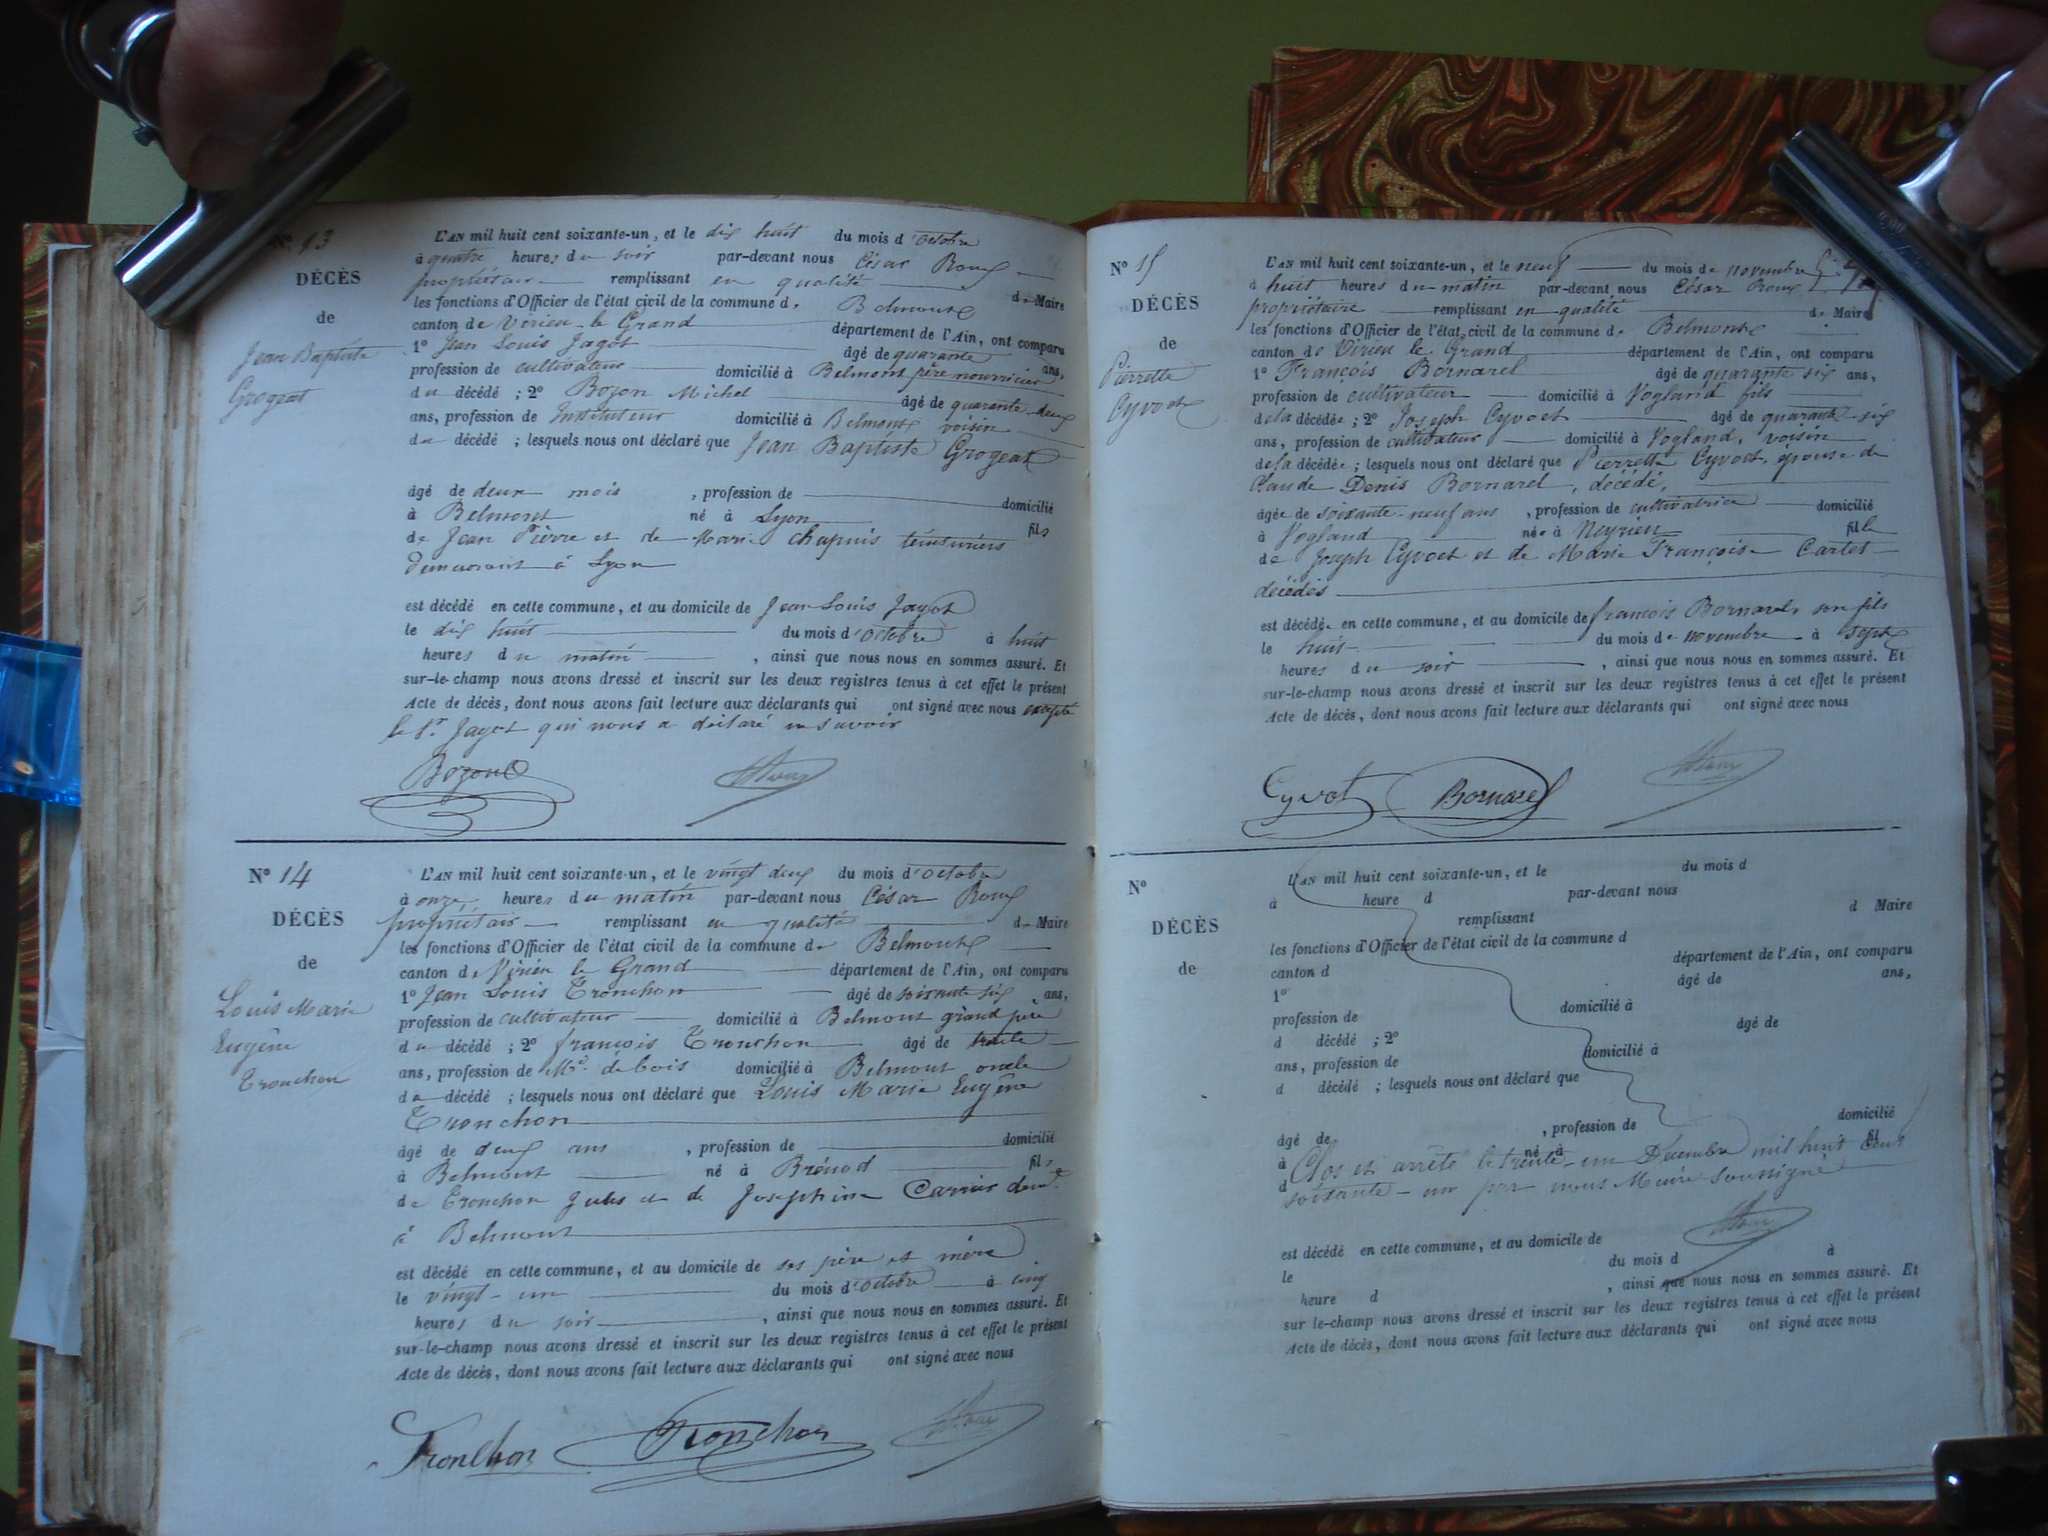 N° 13
DÉCÈS
de
Jean Baptiste
Grogeat
L'AN mil huit cent soixante-un, et le dix huit du mois d'octobre
à quatre heures du soir par-devant nous César Roux
propriétaire remplissant en qualité de Maire
les fonctions d'Officier de l'état civil de la commune de Belmont
canton de Virieu-le Grand département de l'Ain, ont comparu
1° Jean Louis Jagot âgé de quarante ans,
profession de cultivateur domicilié à Belmont père nourricier
du décédé ; 2° Bozon Michel âgé de quarante-deux
ans, profession de Instituteur domicilié à Belmont voisin
du décédé ; lesquels nous ont déclaré que Jean Baptiste Grogeat
âgé de deux mois , profession de domicilié
à Belmont né à Lyon fils
de Jean Pierre et de Marie chapuis teinturiers
demeurant à Lyon
est décédé en cette commune, et au domicile de Jean Louis Jagot
le dix huit du mois d'octobre à huit
heures du matin , ainsi que nous nous en sommes assuré. Et
sur-le-champ nous avons dressé et inscrit sur les deux registres tenus à cet effet le présent
Acte de décès, dont nous avons fait lecture aux déclarants qui ont signé avec nous excepté
le Sr Jagot qui nous a déclaré ne savoir
Bozon
Roux
N° 14
DÉCÈS
de
Louis Marie
Eugène
Tronchon
L'AN mil huit cent soixante-un, et le vingt deux du mois d'octobre
à onze heures du matin par-devant nous César Roux
propriétaire remplissant en qualité de Maire
les fonctions d'Officier de l'état civil de la commune de Belmont
canton de Virieu le Grand département de l'Ain, ont comparu
1° Jean Louis Tronchon âgé de soixante six ans,
profession de cultivateur domicilié à Belmont grand père
du décédé ; 2° françois Tronchon âgé de trente
ans, profession de Md de bois domicilié à Belmont oncle
du décédé ; lesquels nous ont déclaré que Louis Marie Eugène
Tronchon
âgé de deux ans , profession de domicilié
à Belmont né à Brénod fils
de Tronchon Jules et de Josephine Carrier demt
à Belmont
est décédé en cette commune, et au domicile de ses père et mère
le vingt-un du mois d'octobre à cinq
heures du soir , ainsi que nous nous en sommes assuré. Et
sur-le-champ nous avons dressé et inscrit sur les deux registres tenus à cet effet le présent
Acte de décès, dont nous avons fait lecture aux déclarants qui ont signé avec nous
Tronchon Tronchon Roux
N° 15
DÉCÈS
de
Pierrette
Cyvoct
L'AN mil huit cent soixante-un, et le neuf du mois de novembre
à huit heures du matin par-devant nous César Roux
propriétaire remplissant en qualité de Maire
les fonctions d'Officier de l'état civil de la commune de Belmont
canton de Virieu le Grand département de l'Ain, ont comparu
1° François Bornarel âgé de quarante six ans,
profession de cultivateur domicilié à Vogland fils
de la décédée ; 2° Joseph Cyvoct âgé de quarante-six
ans, profession de cultivateur domicilié à Vogland, voisin
de la décédée ; lesquels nous ont déclaré que Pierrette Cyvoct, épouse de
Claude Denis Bornarel, décédé,
âgée de soixante-neuf ans , profession de cultivatrice domicilié
à Vogland née à Neyrieu fille
de Joseph Cyvoct et de Marie Françoise Cartet
décédés
est décédée en cette commune, et au domicile de françois Bornarel, son fils
le huit du mois de novembre à sept
heures du soir , ainsi que nous nous en sommes assuré. Et
sur-le-champ nous avons dressé et inscrit sur les deux registres tenus à cet effet le présent
Acte de décès, dont nous avons fait lecture aux déclarants qui ont signé avec nous
Cyvot Bornarel Roux
N°
DÉCÈS
de
L'AN mil huit cent soixante-un, et le du mois d
à heure d par-devant nous
remplissant d Maire
les fonctions d'Officier de l'état civil de la commune d
canton d département de l'Ain, ont comparu
1° âgé de ans,
profession de domicilié à
d décédé ; 2° âgé de
ans, profession de domicilié à
d décédé ; lesquels nous ont déclaré que
âgé de , profession de domicilié
à né à fil
d
Clos et arrêté le trente-un Décembre mil huit cent
soixante-un par nous Maire soussigné
Roux
est décédé en cette commune, et au domicile de
le du mois d à
heure d , ainsi que nous nous en sommes assuré. Et
sur le-champ nous avons dressé et inscrit sur les deux registres tenus à cet effet le présent
Acte de décès, dont nous avons fait lecture aux déclarants qui ont signé avec nous